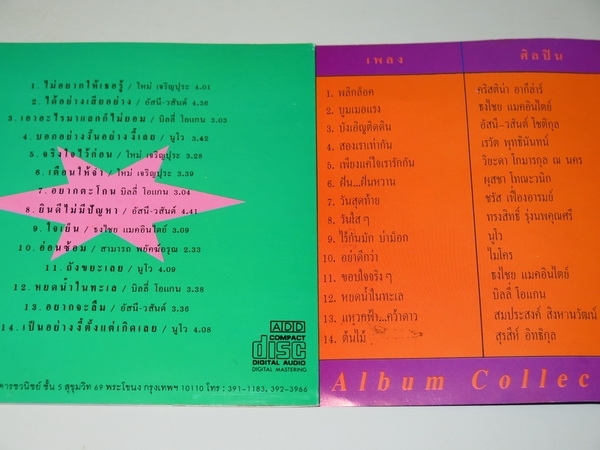 1. ไม่อยากให้เธอรู้ / ใหม่ เจริญปุระ 4.01
2. ได้อย่างเสียอย่าง / อัสนี-วสันต์ 4.36
3. เอาอะไรมาแลกก็ไม่ยอม / บิลลี่ โอแกน 3.03
4. บอกอย่างงั้นอย่างงี้เลย / นูโว 3.42
5. จริงใจไว้ก่อน / ใหม่ เจริญปุระ 3.28
6. เตือนให้จำ / ใหม่ เจริญปุระ 3.39
7. อยากตะโกน บิลลี่ โอแกน 3.04
8. ยินดีไม่มีปัญหา / อัสนี-วสันต์ 4.41
9. ใจเย็น / ธงไชย แมคอินไตย์ 3.09
10. อ่อนซ้อม / สามารถ พยัคฆ์อรุณ 2.33
11. ถังขยะเลย / นูโว 4.09
12. หยดน้ำในทะเล / บิลลี่ โอแกน 3.38
13. อยากจะลืม / อัสนี-วสันต์ 3.36
14. เป็นอย่างงี้ตั้งแต่เกิดเลย / นูโว 4.08
ADD
COMPACT
disc
DIGITAL AUDIO
DIGITAL MASTERING
คารชวนิชย์ ชั้น 5 สุขุมวิท 69 พระโขนง กรุงเทพฯ 10110 โทร : 391-1183, 392-3966
เพลง ศิลปิน
1. พลิกล็อค คริสติน่า อากีล่าร์
2. บูมเมอแรง ธงไชย แมคอินไตย์
3. บังเอิญติดดิน อัสนี-วสันต์ โชติกุล
4. สองเราเท่ากัน เรวัต พุทธินันทน์
5. เพียงแค่ใจเรารักกัน วิยะดา โกมารกุล ณ นคร
6. ฝัน...ฝันหวาน ผุสชา โทณะวณิก
7. วันสุดท้าย ชรัส เฟื่องอารมย์
8. วันใส ๆ ทรงสิทธิ์ รุ่งนพคุณศรี
9. ไร้กันมัก บ่าม็อก นูโว
10. อย่าดีกว่า ไมโคร
11. ขอบใจจริง ๆ ธงไชย แมคอินไตย์
12. หยดน้ำในทะเล บิลลี่ โอแกน
13. แหวกฟ้า...คว้าดาว สมประสงค์ สิงหานวัฒน์
14. ต้นไม้ สุรสีห์ อิทธิกุล
Album Collec